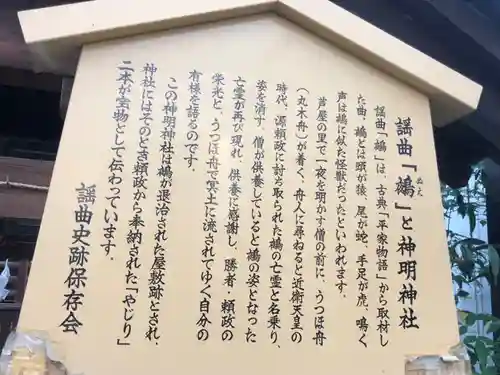 謡曲「鵺」と神明神社
ぬえ
謡曲「鵺」は、古典「平家物語」から取材し
た曲。鵺とは頭が猿、尾が蛇、手足が虎、鳴く
声は鵼に似た怪獣だったといわれます。
芦屋の里で一夜を明かす僧の前に、うつほ舟
(丸木舟)が着く。舟人に尋ねると近衛天皇の
時代、源頼政に討ち取られた鵺の亡霊と名乗り、
姿を消す。僧が供養していると鵺の姿となった
亡霊が再び現れ、供養に感謝し、勝者・頼政の
栄光と、うつほ舟で冥土に流されてゆく自分の
有様を語るのです。
この神明神社は鵺が退治された屋敷跡とされ、
神社にはそのとき頼政から奉納された「やじり」
二本が宝物として伝わっています。
謡曲史跡保存会